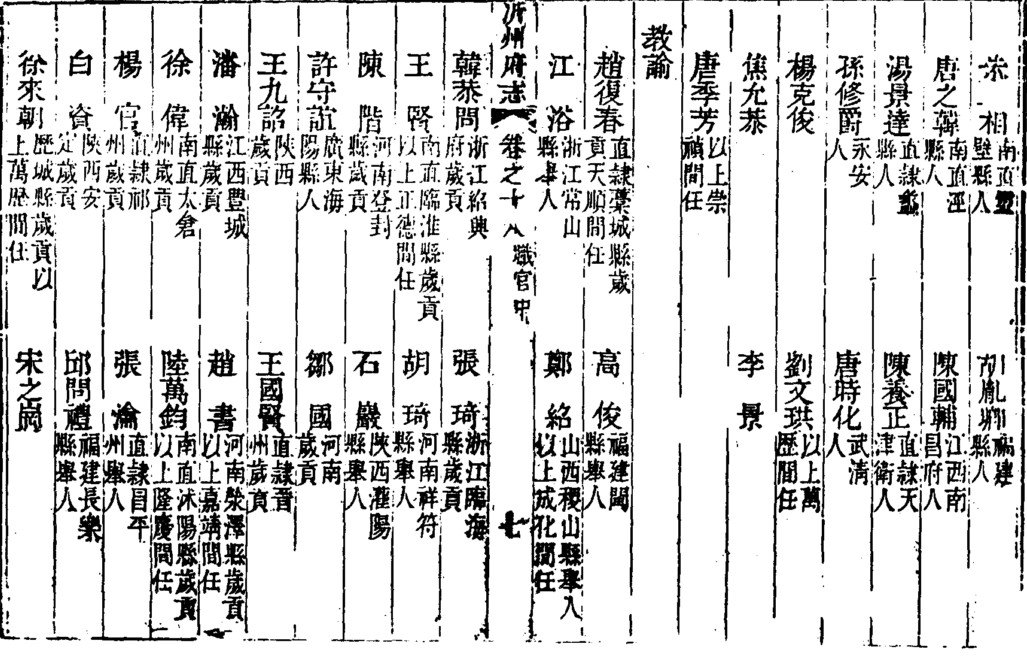 朱　相南直靈璧縣人　　胡胤卿福建縣人
唐之韓南直涇縣人　　陳國輔江西南昌府人
湯景達直隸蠡縣人　　陳養正直隸天津衛人
孫修爵永安人　　唐時化武清人
楊克俊　　劉文珙以上萬歷間任
焦允恭　　李　景
唐季芳以上崇禎間任
教諭
趙復春直隸藁城縣歲貢天順間任　　高　俊福建閩縣舉人
江　浴浙江常山縣舉人　　鄭　紹山西稷山縣舉人以上成化間任
沂州府志　卷之十八　職官中　七
韓恭問浙江紹興府歲貢　　張　琦浙江臨海縣歲貢
王　賢南直臨淮縣歲貢以上正德間任　　胡　琦河南祥符縣舉人
陳　階河南登封縣歲貢　　石　巖陝西濯陽縣舉人
許守誼廣東海陽縣人　　鄒　國河南歲貢
王九詔陝西歲貢　　王國賢直隸晉州歲貢
潘　瀚江西豐城縣歲貢　　趙　書河南滎澤縣歲貢以上嘉靖間任
徐　偉南直太倉州歲貢　　陸萬鈞南直沭陽縣歲貢以上隆慶間任
楊　官直隸祁州歲貢　　張　瀹直隸昌平州舉人
白　資陝西安定歲貢　　邱問禮福建長樂縣舉人
徐來朝歷城縣歲貢以上萬歷間任　　宋之岗